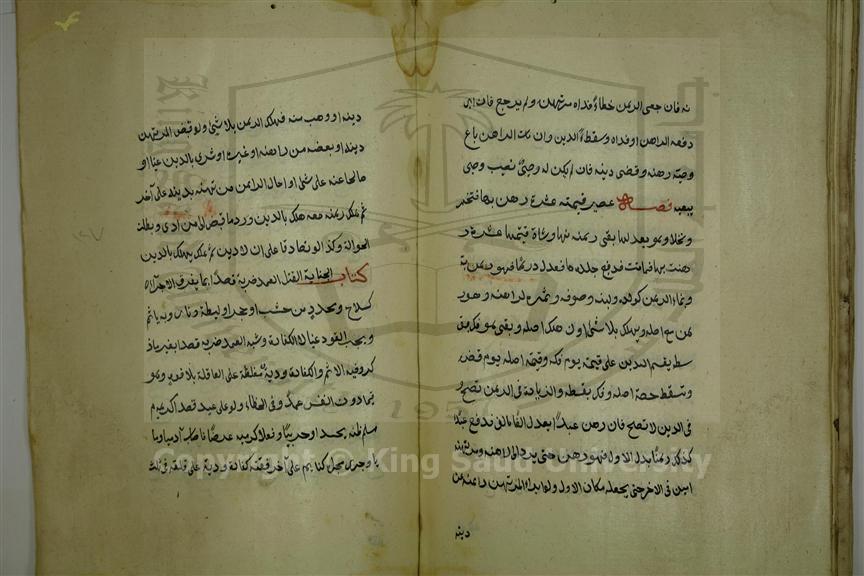 نه فان جنى الرهن خطأ وفداه مرتهن ولم يرجع فان ابى
دفعه الراهن او فداه وسقط الدين وان مات الراهن باع
وصيه رهنه وقضى دينه فان لم يكن له وصي نصب وصي
يبيعه فصل عصير قيمته عشرة رهن بها فتخمر
وتخلل وهو يعدلها بقي رهنه بها وشاة قيمتها عشرة ر
هنت بها فماتت فدبغ جلدها فعدل درهما فهو رهن به
ونماء الرهن كولده ولبنه وصوفه وثمره لراهنه وهو ر
هن مع اصله ويهلك بلا شئ وان هلك اصله وبقي هو فك بق
سطه يقسم الدين على قيمته يوم فكه وقيمة اصله يوم قبضه
وتسقط حصة اصله وفك بقسطه والزيادة في الرهن تصح و
في الدين لا تصح فان رهن عبدا يعدل الفا بالف فدفع عبدا
كذلك رهنا بدل الاول فهو رهن حتى يرد الى راهنه ومرتهنه
امين في الاخر حتى يجعله مكان الاول ولو ابرأ المرتهن راهنه من
دينه
دينه او وهب منه فهلك الرهن بلا شئ ولو قبض المرتهن
دينه او بعضه من راهنه او غيره او شرى بالدين عينا او
صالحا عنه على شئ او احال الراهن مرتهنه بدينه على آخر
ثم هلك رهنه معه هلك بالدين ورد ما قبض الى من ادى وبطلت
الحوالة وكذا لو تصادقا على ان لا دين ثم هلك يهلك بالدين
كتاب الجناية القتل العمد ضربه قصدا بما يفرق الاجزاء
كسلاح ومحدد من خشب او حجر او ليطة ونار وبه يأثم
ويجب القود عينا لا الكفارة وشبه العمد ضربه قصدا بغير ما ذ
كر وفيه الاثم والكفارة ودية مغلظة على العاقلة بلا قود وهو
فيما دون النفس عمد وفي الخطاء ولو على عبد قصدا كرميه
مسلما ظنه صيدا او حربيا وفعلا كرميه غرضا فاصاب آدميا وما
جرى مجراه كنائم على آخر فقتله كفارة ودية على عاقلة في ثلث